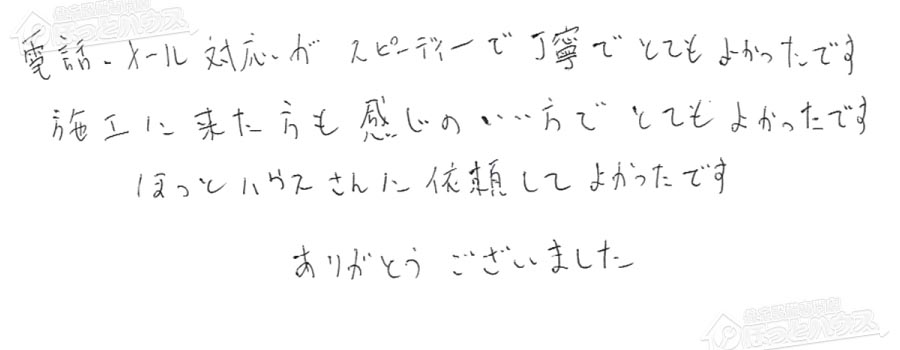 電話、メール対応が スピーディーで丁寧でとてもよかったです
施工に来た方も感じのいい方でとてもよかったです
ほっとハウスさんに依頼してよかったです
ありがとうございました
ほっとハウス